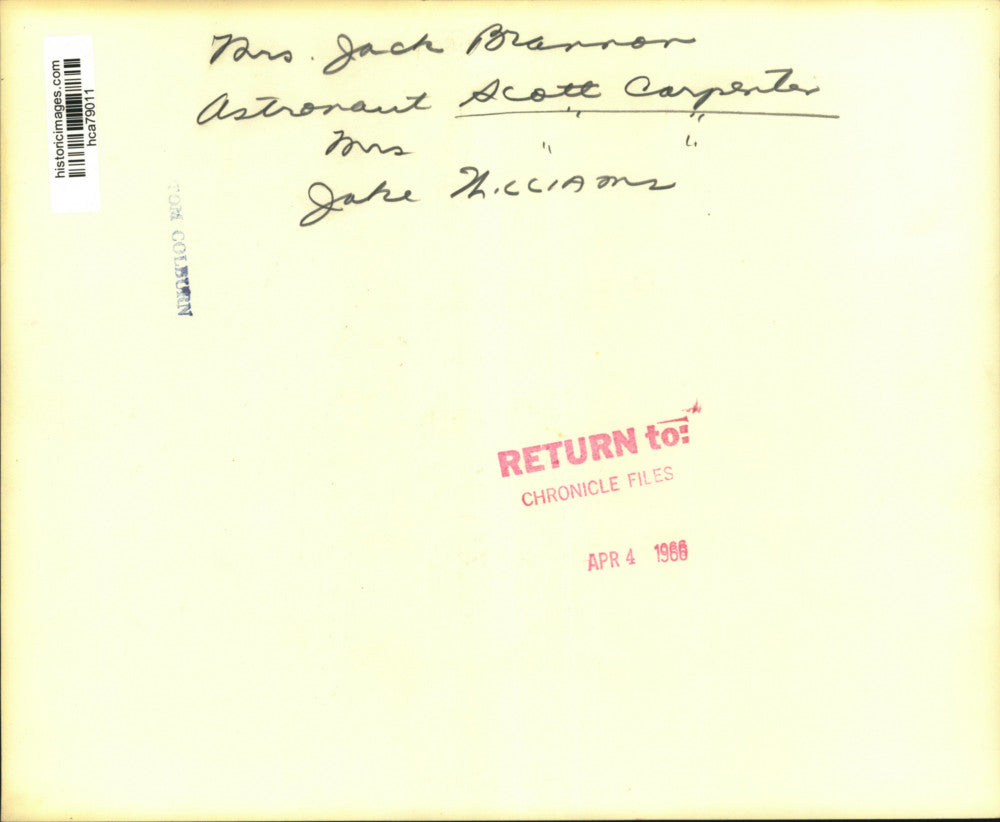 Mrs. Jack Brannon
Astronaut Scott Carpenter
Mrs " "
Jake Williams
historicimages.com
hca79011
TOM COLBURN
RETURN to:
CHRONICLE FILES
APR 4 1966